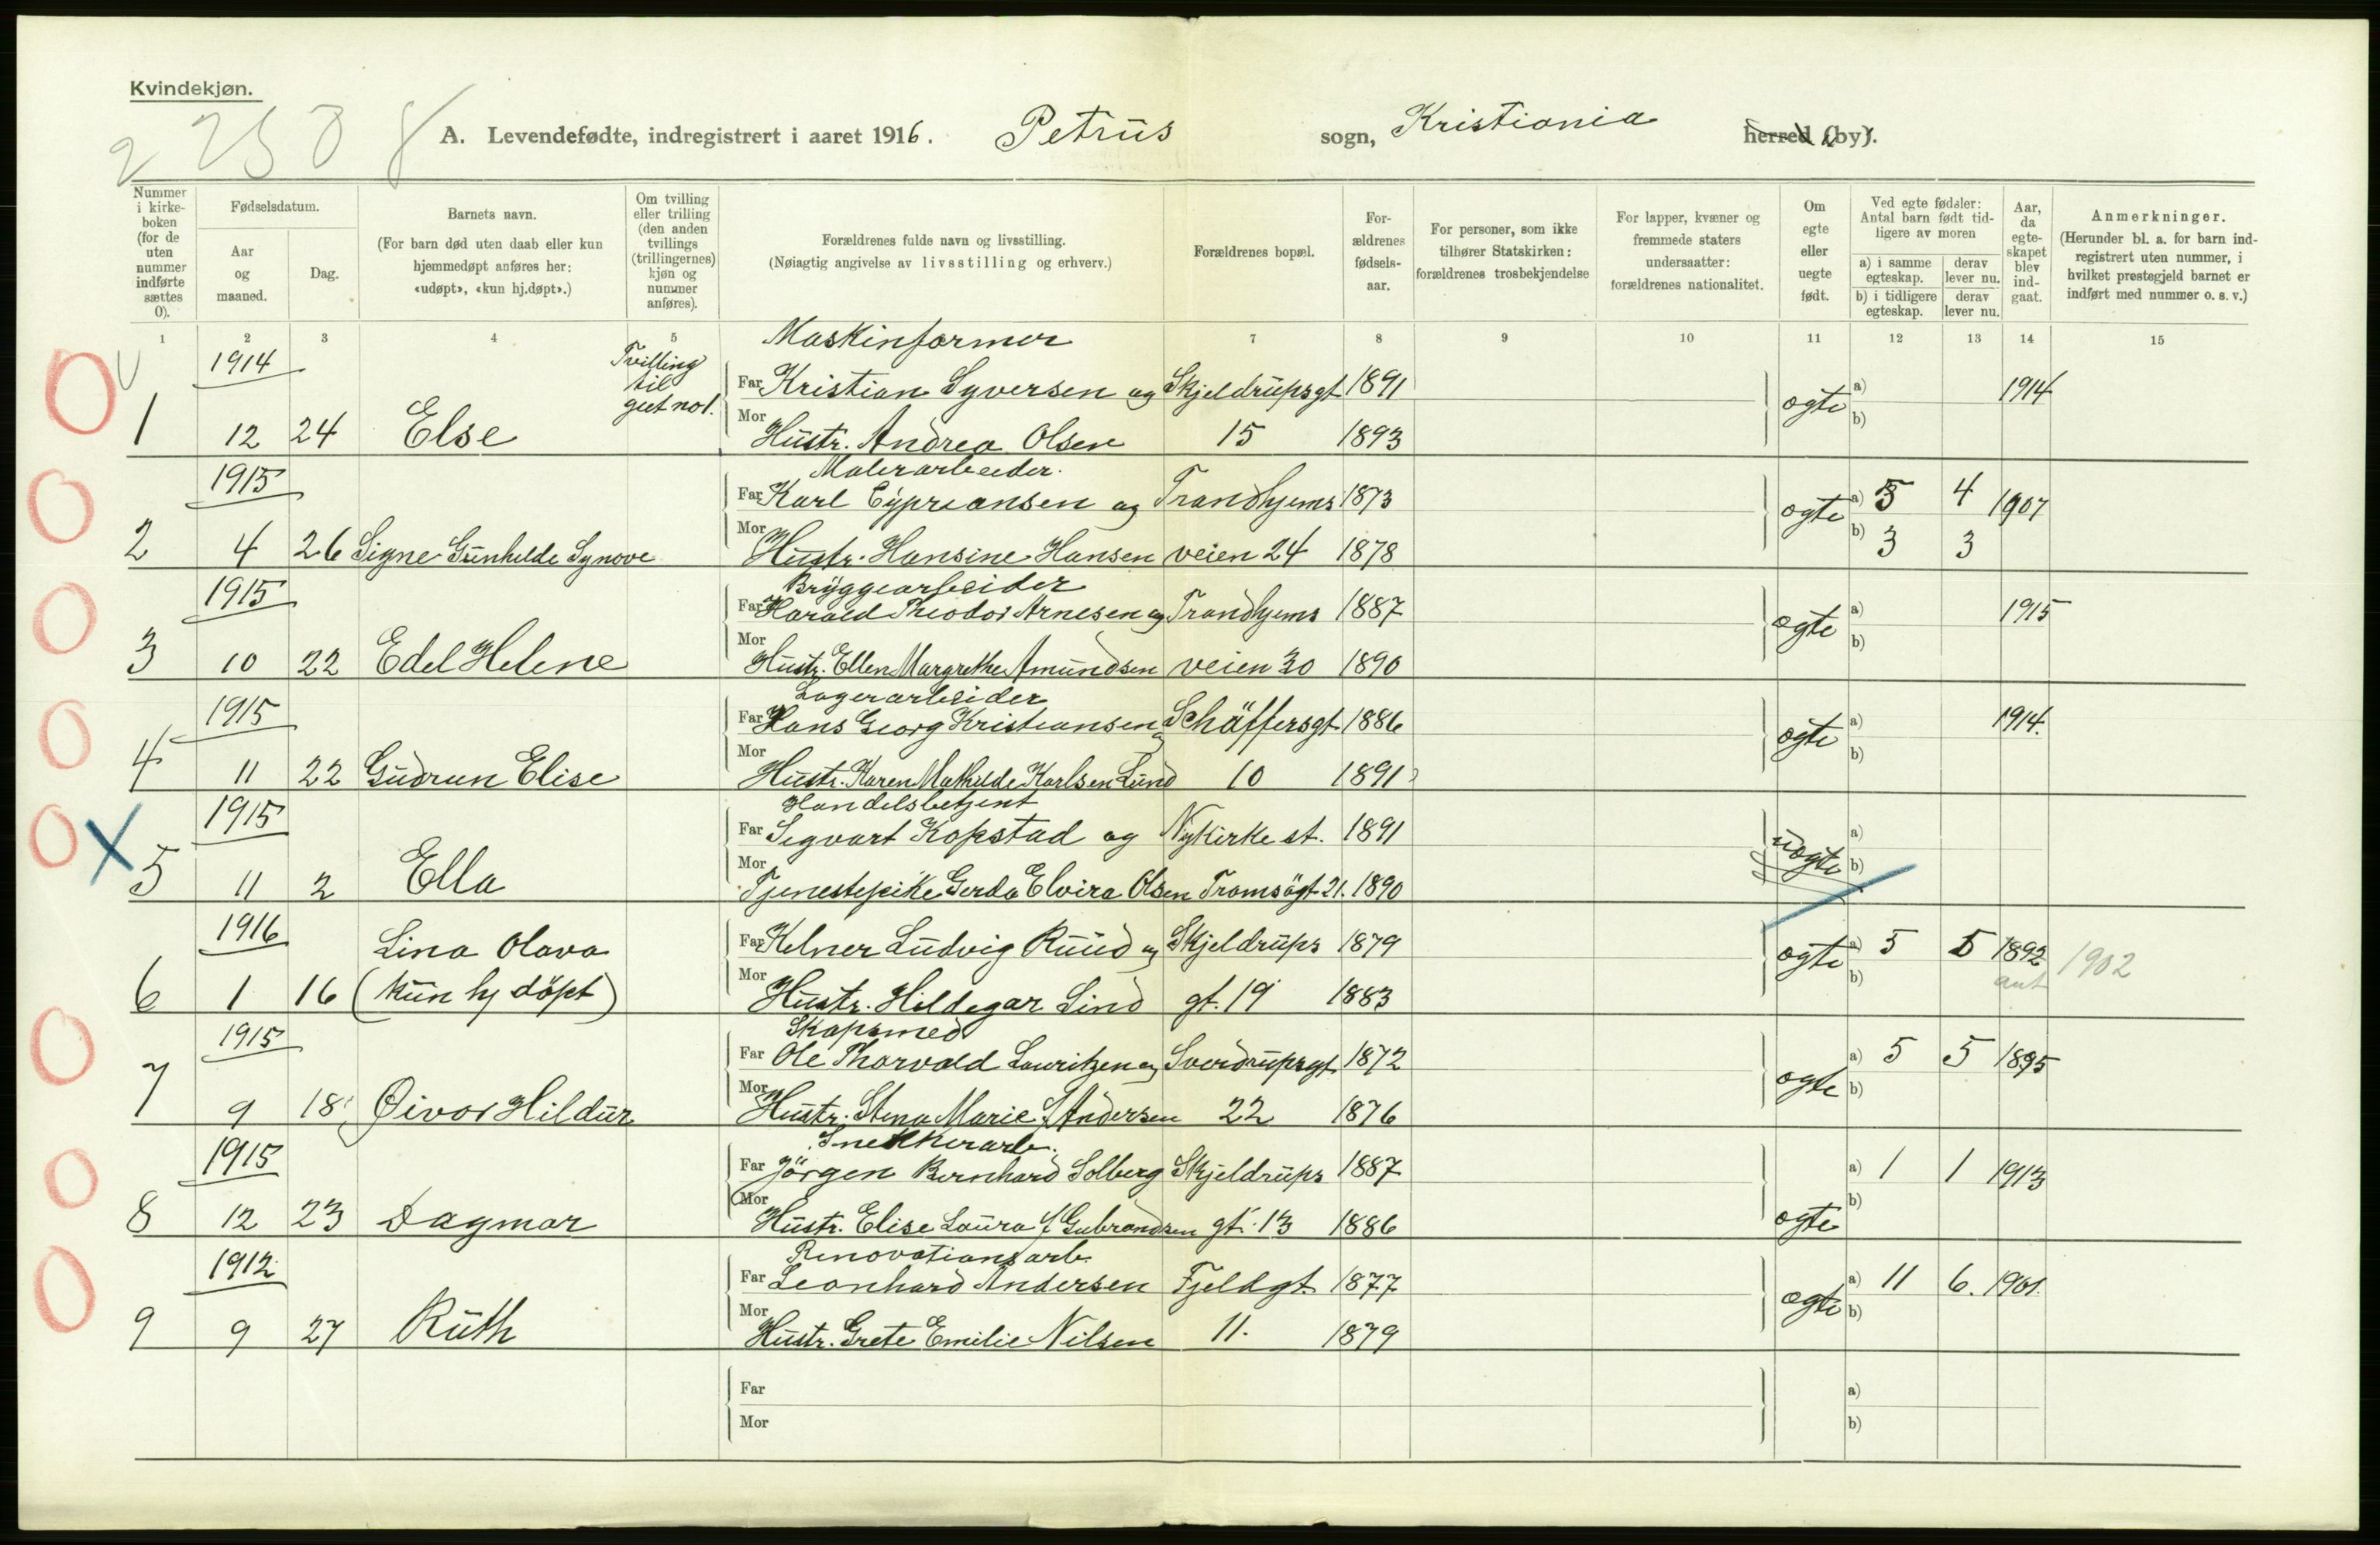 Kvindekjøn.
A. Levendefødte, indregistrert i aaret 1916. Petrus sogn, Kristiania herred (by).
Nummer i kirke-boken (for de uten nummer indførte sættes 0).
Fødselsdatum.
Aar og maaned.
Dag.
Barnets navn.
(For barn død uten daab eller kun hjemmedøpt anføres her: «udøpt», «kun hj.døpt».)
Om tvilling eller trilling (den anden tvillings (trillingernes) kjøn og nummer anføres).
Forældrenes fulde navn og livsstilling.
(Nøiagtig angivelse av livsstilling og erhverv.)
Forældrenes bopæl.
For-ældrenes fødsels-aar.
For personer, som ikke tilhører Statskirken: forældrenes trosbekjendelse
For lapper, kvæner og fremmede staters undersaatter: forældrenes nationalitet.
Om egte eller uegte født.
Ved egte fødsler: Antal barn født tid-ligere av moren
a) i samme egteskap.
derav lever nu.
b) i tidligere egteskap.
derav lever nu.
Aar, da egte-skapet blev ind-gaat.
Anmerkninger.
(Herunder bl. a. for barn ind-registrert uten nummer, i hvilket prestegjeld barnet er indført med nummer o. s. v.)
1 2 3 4 5 7 8 9 10 11 12 13 14 15
1914 Tvilling til gut no 1. Maskinformer
Far Kristian Syversen og Skjeldrupsgt 1891 ægte a) 1914
1 12 24 Else Mor Hustr. Andrea Olsen 15 1893 b)
1915 Malerarbeider.
Far Karl Cypriansen og Trondhjems 1873 ægte a) 5 4 1907
2 4 26 Signe Gunhilde Synove Mor Hustr. Hansine Hansen veien 24 1878 b) 3 3
1915 Bryggearbeider
Far Harald Theodor Arnesen og Trondhjems 1887 ægte a) 1915
3 10 22 Edel Helene Mor Hustr. Ellen Margrethe Amundsen veien 30 1890 b)
1915 Lagerarbeider
Far Hans Georg Kristiansen og Schäffersgt. 1886 ægte a) 1914.
4 11 22 Gudrun Elise Mor Hustr. Karen Mathilde Karlsen Lund 10 1891 b)
1915 Handelsbetjent
Far Segvart Kopstad og Nykirke st. 1891 uægte a)
5 11 2 Ella Mor Tjenestepike Gerda Elvira Olsen Tromsögt 21. 1890 b)
1916 Lina Olava Far Kelner Ludvig Ruud og Skjeldrups 1879 ægte a) 5 5 1892 1902
6 1 16 (kun hj döpt) Mor Hustr. Hildegar Lind gt. 19 1883 b) ant
1915 Skapsmed
Far Ole Thorvald Lauritzen og Sverdrupsgt 1872 ægte a) 5 5 1895
7 9 18 Øivor Hildur Mor Hustr. Stena Marie f Andersen 22 1876 b)
1915 Snekkerarb.
Far Jörgen Bernhard Solberg Skjeldrups 1887 a) 1 1 1913
8 12 23 Dagmar Mor Hustr. Elise Laura f Gubrandsen gt. 13 1886 ægte b)
1912 Renovationsarb.
Far Leonhard Andersen Fjeldgt. 1877 ægte a) 11 6. 1901.
9 9 27 Ruth Mor Hustr. Grete Emilie Nilsen 11. 1879 b)
Far a)
Mor b)